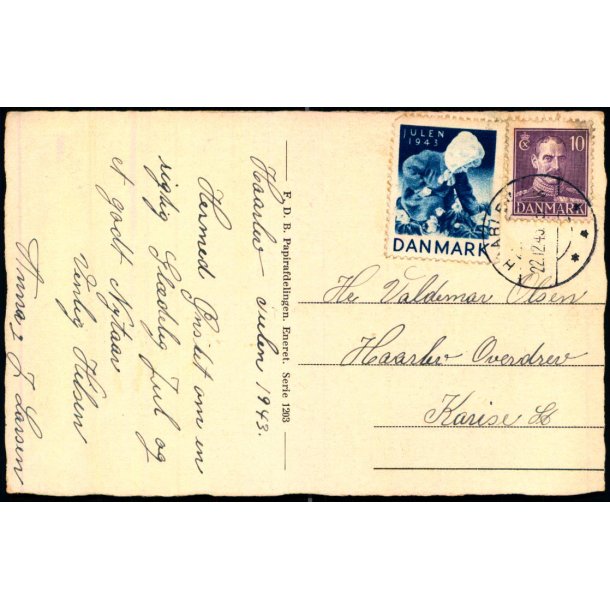 Haarlev Julen 1943.
Hermed Ønsket om en
rigtig Glædelig Jul og
et godt Nytaar
Venlig Hilsen
Anna & J Larsen
F. D. B. Papirafdelingen. Eneret. Serie 1203
JULEN
1943
DANMARK
10
DANMARK
HAARLEV
22.12.43
Hr Valdemar Olsen
Haarlev Overdrev
Karise St